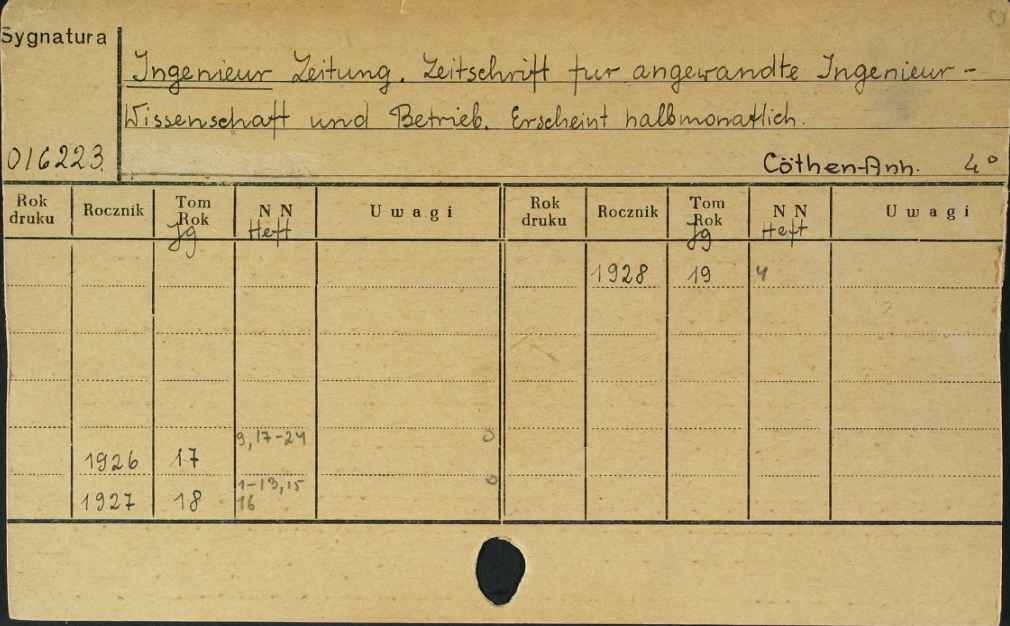 Sygnatura
Ingenieur Zeitung. Zeitschrift fur angewandte Ingenieur-
Wissenschaft und Betrieb. Erscheint halbmonatlich.
016223.
Cöthen-Anh. 4°
Rok druku Rocznik Tom Rok Jg N N Heft Uwagi Rok druku Rocznik Tom Rok Jg N N Heft Uwagi
1928 19 4
1926 17 9, 17-24
1927 18 1-13, 15
16